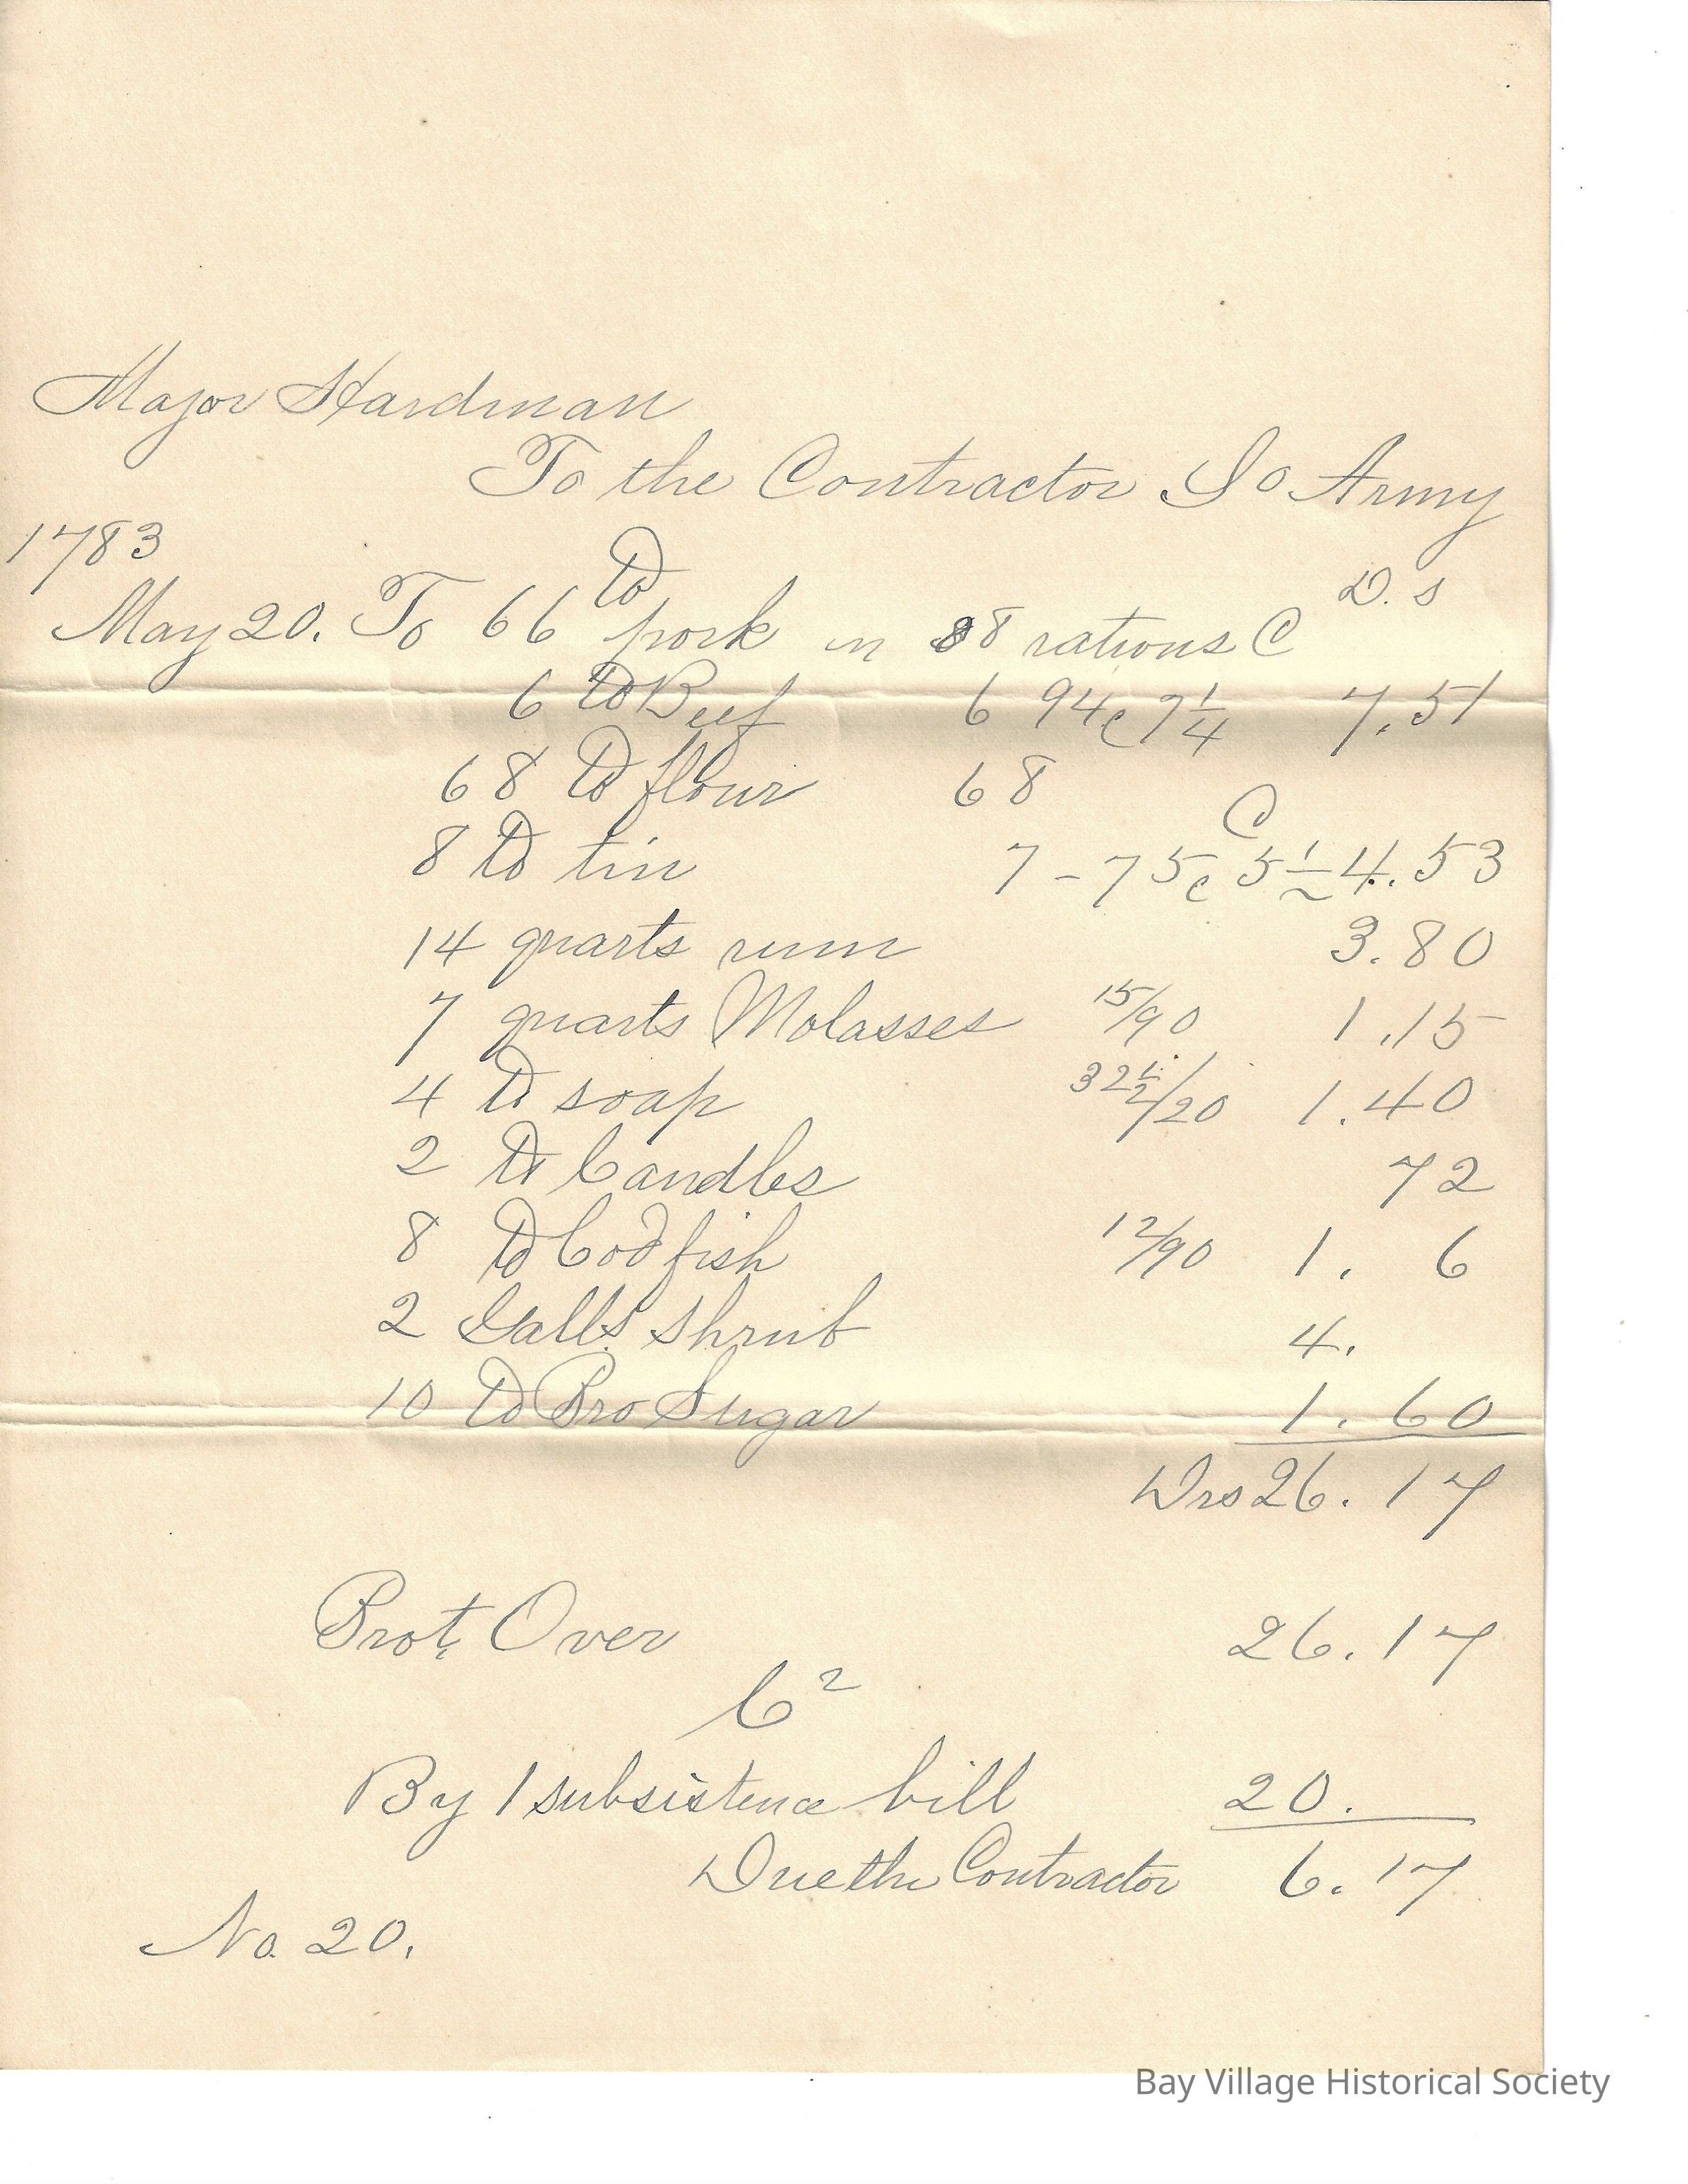 Major Hardman
To the Contractor So Army
1783
D. s
May 20. To 66 ℔ pork in 88 rations @
6 ℔ Beef 6 94 @ 7 1/4 7.51
68 ℔ flour 68
8 ℔ tin 7 - 75 @ 5 1/2 4.53
14 quarts rum 3.80
7 quarts Molasses 15/90 1.15
4 ℔ soap 32 1/2/20 1.40
2 ℔ Candles 72
8 ℔ Codfish 12/90 1. 6
2 Galls. shrub 4.
10 ℔ Bro Sugar 1.60
Drs 26.17
Brot. Over 26.17
By 1 subsistence bill 20.
Due the Contractor 6.17
No. 20.
Bay Village Historical Society